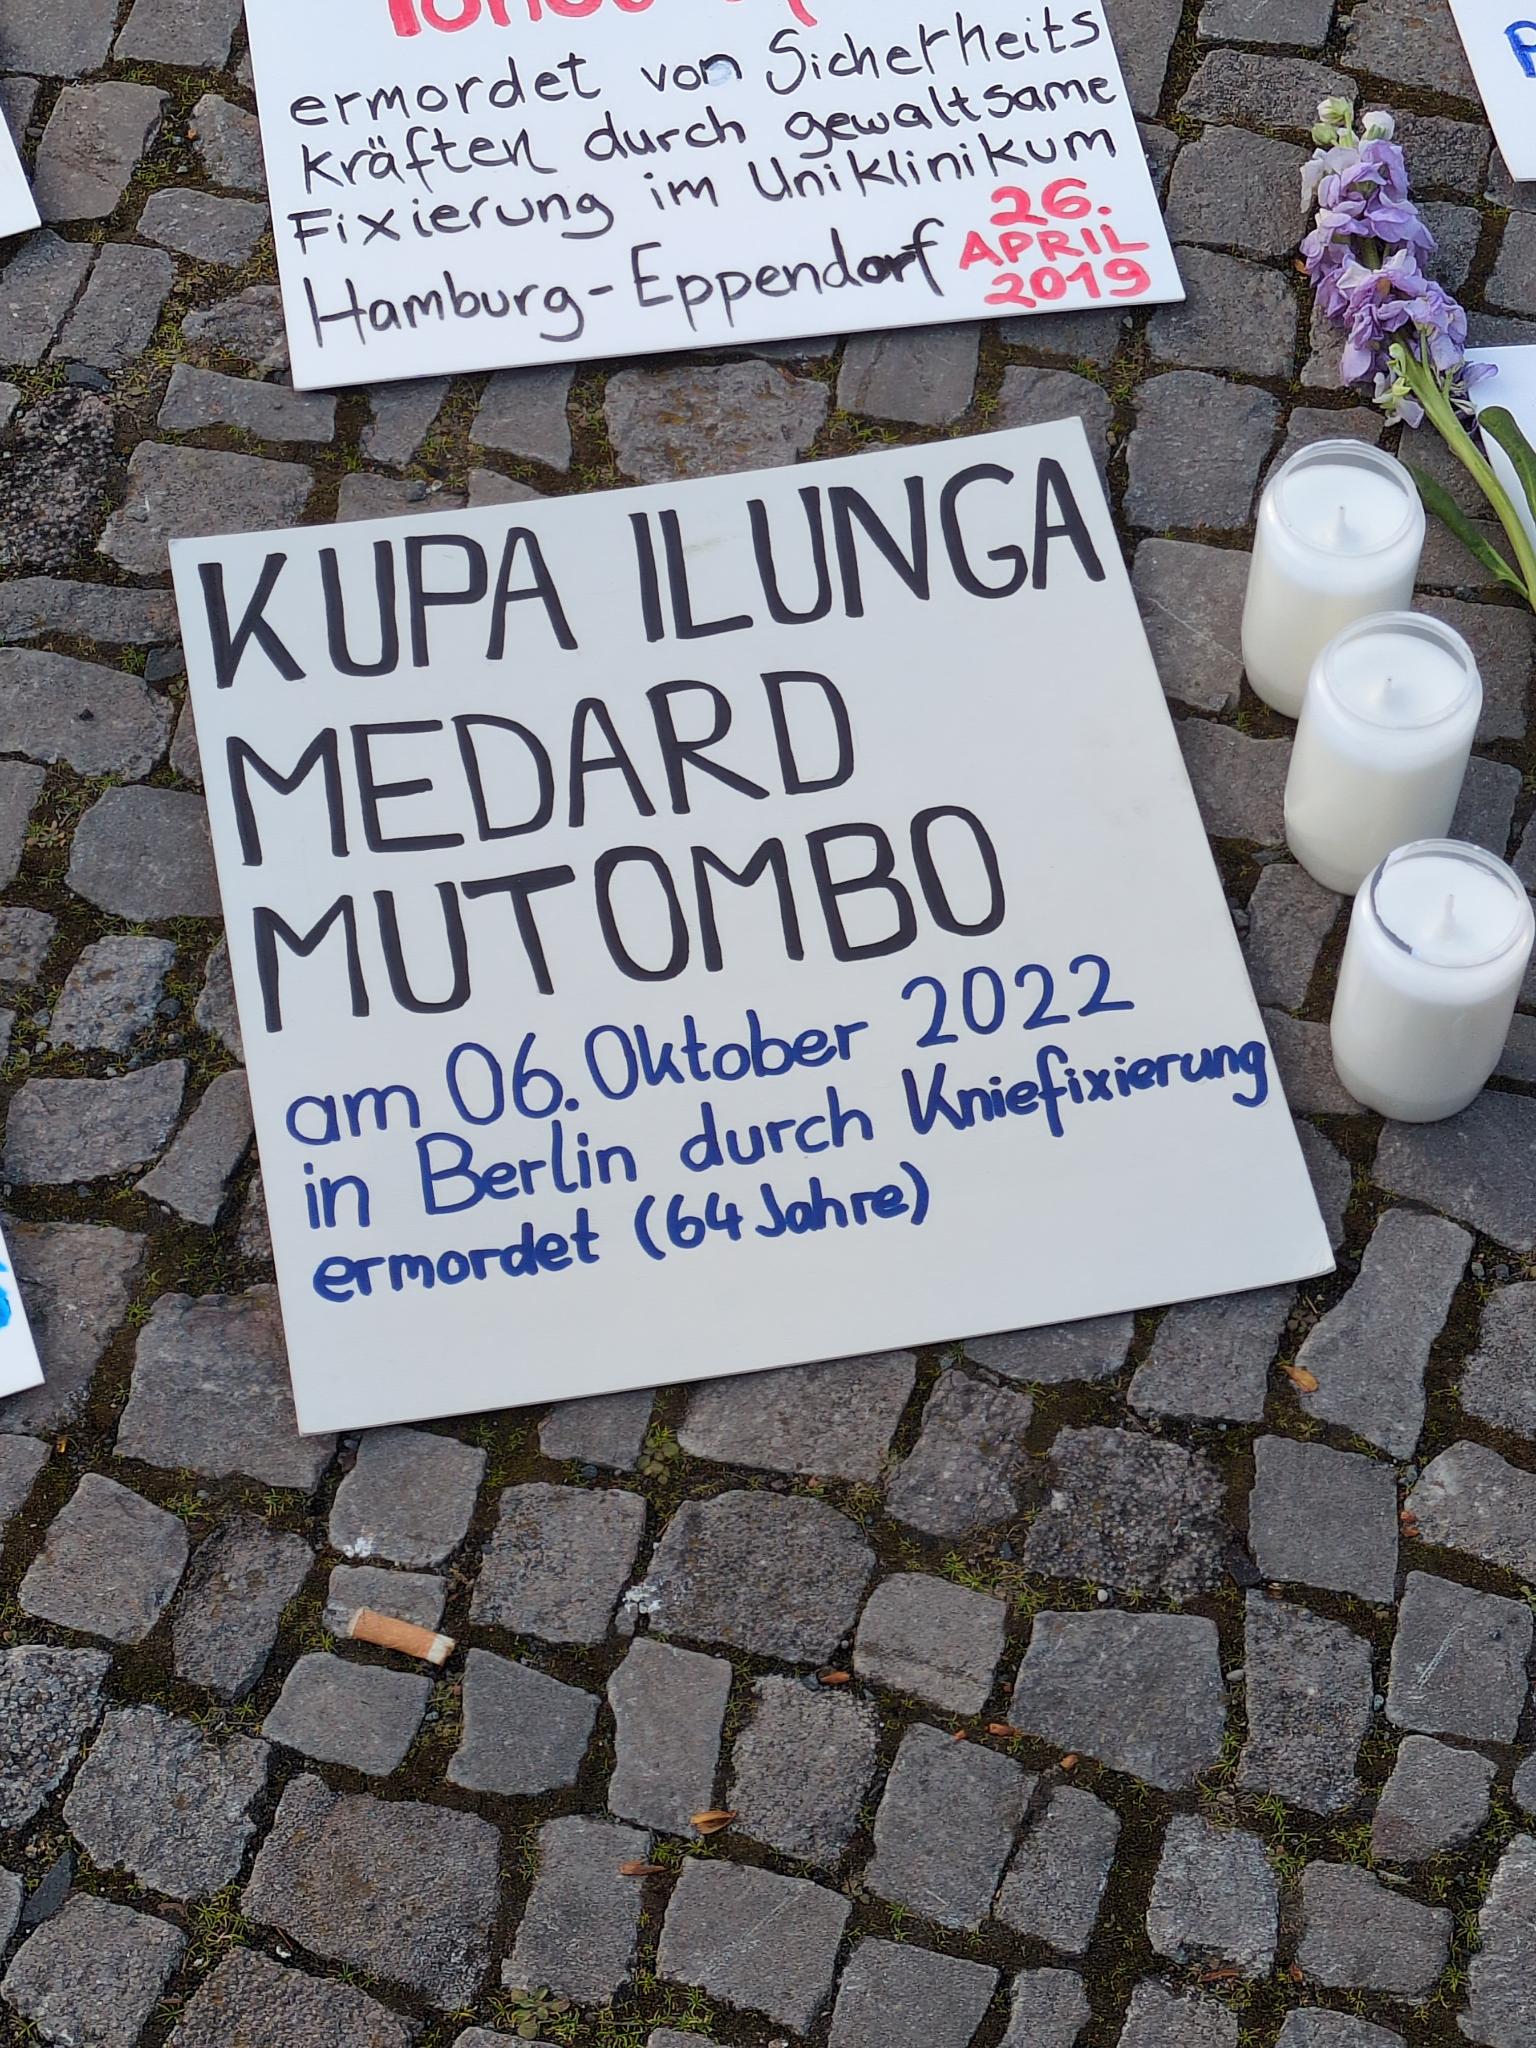 ermordet von Sicherheits
kräften durch gewaltsame
Fixierung im Uniklinikum
Hamburg-Eppendorf 26.
APRIL
2019
KUPA ILUNGA
MEDARD
MUTOMBO
am 06. Oktober 2022
in Berlin durch Kniefixierung
ermordet (64 Jahre)